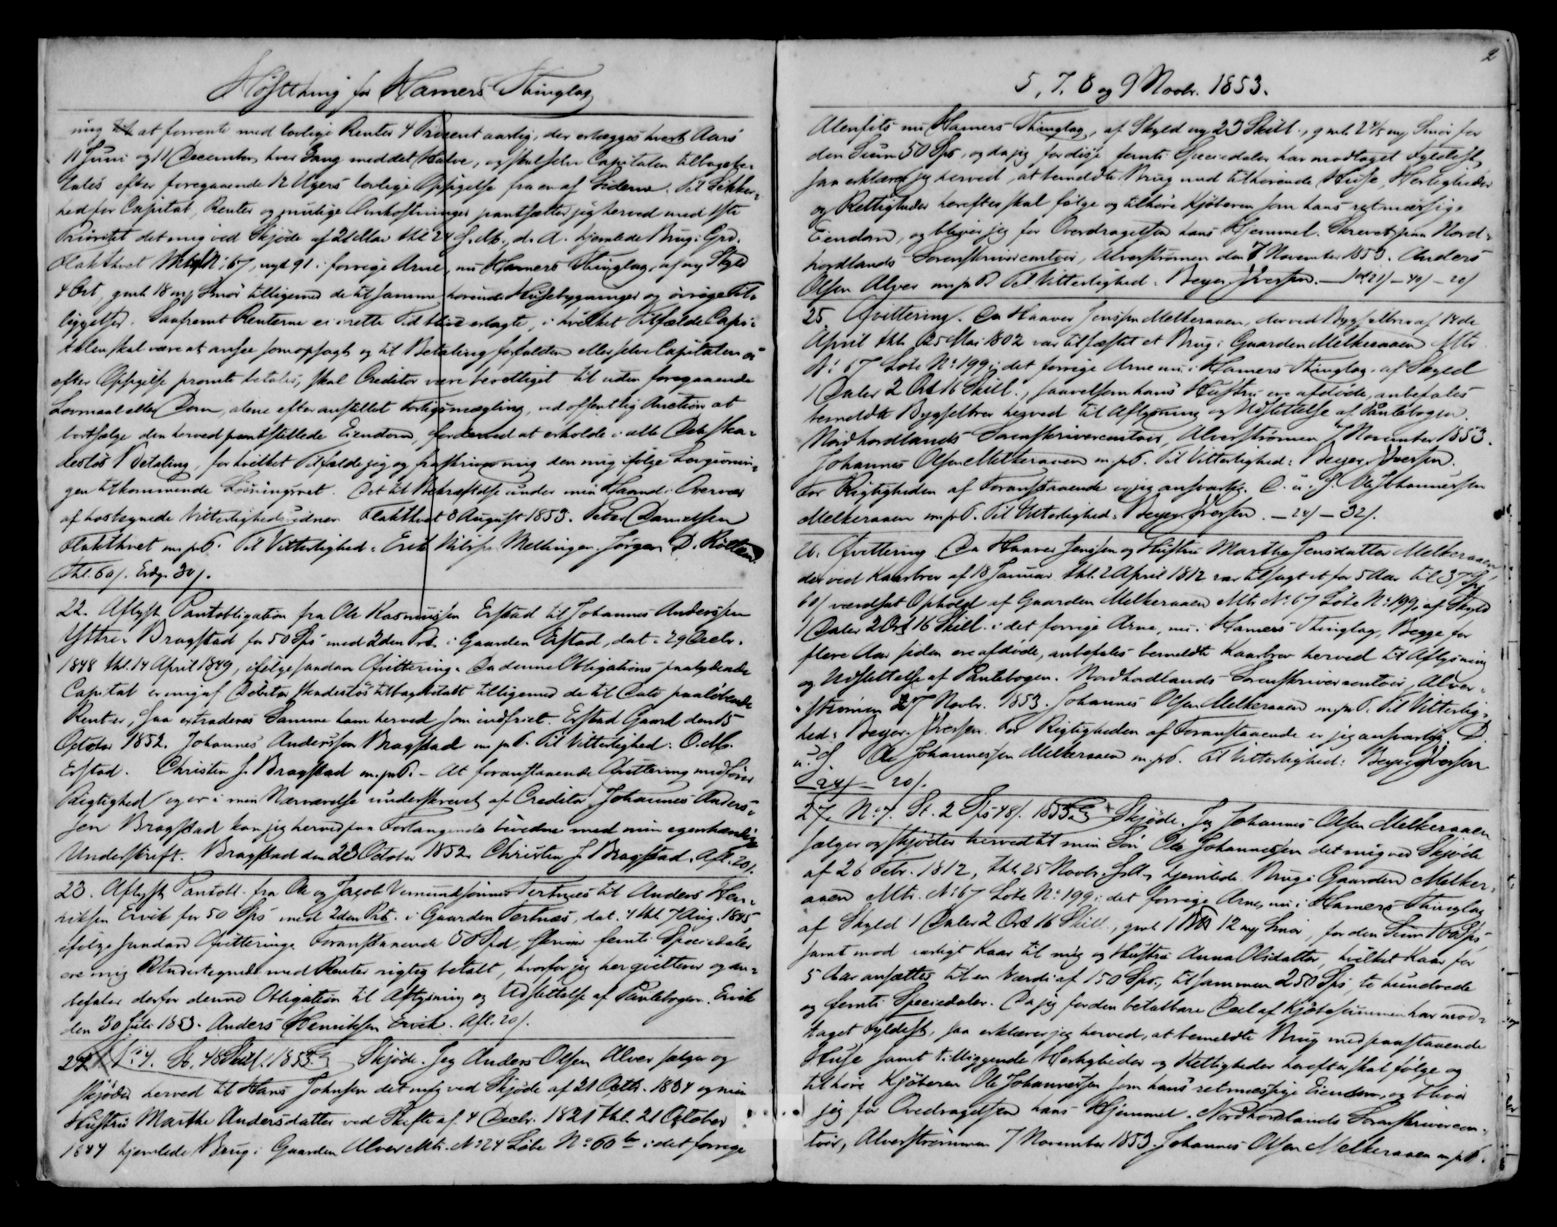 Høstthing for Hamers Thinglag
mig til at forrente med lovlige Renter 4 Procent aarlig, der erlægges hvert Aars
11 Juni og 11 December, hver Gang med det Halve, og skal selve Capitalen tilbagebe-
tales efter foregaaende 12 Ugers lovlig Opsigelse fra en af Siderne. Til Sikker-
hed for Capital, Renter og mulige Omkostninger pantsætter jeg herved med 1ste
Prioritet det mig ved Skjøde af 21 Mar thl. 24 S. M., d. A. hjemlede Brug i Grd.
Flakthvet Mtr. N: 67, nyt 91 i forrige Arne, nu Hamers Thinglag, af ny Skyld
4 Ort, gml. 18 mk Smør tilligemed de til samme hørende Huusebygninger og øvrige Til-
liggelser. Saafremt Renterne ei i rette Tid blive erlagte, i hvilket Tilfælde Capi-
talen skal være at ansee som opsagt og til Betaling forfalden eller selve Capitalen ei
efter Opsigelse promte betales, skal Creditor være berettiget til uden foregaaende
Lovmaal eller Dom, alene efter anstillet Forligsmægling, ved offentlig Auction at
bortsælge den herved pantstillede Eiendom, for derved at erholde i alle Dele ska-
desløs Betaling, for hvilket Tilfælde jeg og fraskriver mig den mig ifølge Lovgivnin-
gen tilkommende Løsningsret. Det til Bekræftelse under min Haand i Overvær
af hostegnede Vitterligheds vidner. Flakthvet 3 August 1853. Peder Danielsen
Flakthvet m. p. P. Til Vitterlighed: Erik Nilsen Mellingen. Jørgen D. Kolleen
Thl. 60 /. Erdg. 30 /.
22. Aflyst Pantobligation fra Ole Rasmussen Erstad til Johannes Anderssen
Ystre Bragstad for 50 Spd med 2den Pr. i Gaarden Erstad, dat. 29 Decbr.
1848 thl. 14 April 1849, ifølge saadan Qvittering. Da denne Obligations paalydende
Capital er mig af Debitor skadesløs tilbagebetalt tilligemed de til Dato paaløbende
Renter, saa extraderes Samme ham herved som indfriet. Erstad Gaard den 15
October 1852. Johannes Anderssen Bragstad m. p. P. Til Vitterlighed: O. M.
Erstad. Christen J. Bragstad m. p. P. – At foranstaaende Qvittering medfører
Rigtighed og er i min Nærværelse underskrevet af Creditor Johannes Anders-
sen Bragstad kan jeg herved paa Forlangende bevidne med min egenhændige
Underskrift. Bragstad den 23 October 1852. Christen J. Bragstad. Afl. 20 /.
23. Aflyst Pantobl. fra Ole og Jacob Vemundsønner Tertnæs til Anders Hen-
riksen Ervik for 50 Spd med 2den Prt. i Gaarden Tertnæs, dat. 4 thl. 7 Aug. 1845
ifølge saadan Qvittering: Foranstaaende 50 Spd, skriver femti Speciedaler
ere mig Undertegnede med Renter rigtig betalt, hvorfor jeg her qvitterer og an-
befaler derfor denne Obligation til Aflysning og Udslettelse af Pantebogen. Ervik
den 30 Juli 1853. Anders Henriksen Ervik. Afl. 20 /.
24. N: 4. St. 48 Skill. 1853. Skjøde. Jeg Anders Olsen Alver sælger og
skjøder herved til Hans Johnsen det mig ved Skjøde af 21 Octb. 1834 og min
Hustru Marthe Andersdatter ved Skifte af 4 Decbr. 1821 thl. 21 October
1844 hjemlede Brug i Gaarden Alver Mtr. N: 24 Løbe N: 60 b i det forrige
2
5, 7, 8 og 9 Novbr. 1853.
Alenfits nu Hamers Thinglag, af Skyld ny 23 Skill., gml. 2 mk Smør for
den Sum 50 Spd, og da jeg for disse femti Speciedaler har modtaget Fyldest,
saa erklærer jeg herved, at bemeldte Brug med tilhørende Huse, Herligheder
og Rettigheder herefter skal følge og tilhøre Kjøberen som hans retmæssige
Eiendom, og bliver jeg for Overdragelsen hans Hjemmel. Skrevet paa Nord-
hordlands Sorenskrivercontoir, Alverstrømmen den 7 November 1853. Anders
Olsen Alver m. p. P. Til Vitterlighed: Beyer. Iversen. 24 /. – 40 /. – 20 /.
25. Qvittering. Da Haaver Jensen Melkeraaen, der ved Bygselbrev af 14de
April thl. 25 Mai 1802 var tilfæstet et Brug i Gaarden Melkeraaen Mtr.
N: 67 Løbe N: 199, i det forrige Arne nu i Hamers Thinglag af Skyld
1 Daler 2 Ort 16 Skill., saavelsom hans Hustru ere afdøde, anbefales
bemeldte Bygselbrev herved til Aflysning og Udslettelse af Pantebogen.
Nordhordlands Sorenskrivercontoir, Alverstrømmen 7 November 1853.
Johannes Olsen Melkeraaen m. p. P. Til Vitterlighed: Beyer. Iversen.
For Rigtigheden af Foranstaaende er jeg ansvarlig. D. u. S. Ole Johannessen
Melkeraaen m. p. P. Til Vitterlighed: Beyer. Iversen. – 24 /. – 32 /.
26. Qvittering. Da Haaver Jenssen og Hustru Marthe Jensdatter Melkeraaen
der ved Kaarbrev af 13 Januar thl. 2 April 1812 var tilsagt et for 5 Aar til 37 Spd
60 / værdsat Ophold af Gaarden Melkeraaen Mtr. N: 67 Løbe N: 199, af Skyld
1 Daler 2 Ort 16 Skill. i det forrige Arne, nu i Hamers Thinglag, Begge for
flere Aar siden ere afdøde, anbefales bemeldte Kaarbrev herved til Aflysning
og Udslettelse af Pantebogen. Nordhordlands Sorenskrivercontoir, Alver-
strømmen 7 Novbr. 1853. Johannes Olsen Melkeraaen m. p. P. Til Vitterlig-
hed: Beyer. Iversen. For Rigtigheden af Foranstaaende er jeg ansvarlig. D.
u. S. Ole Johannessen Melkeraaen m. p. P. Til Vitterlighed: Beyer. Iversen
– 24 /. – 20 /.
27. N: 4. St. 2 Spd 48 /. 1853. Skjøde. Jeg Johannes Olsen Melkeraaen
sælger og skjøder herved til min Søn Ole Johannessen det mig ved Skjøde
af 26 Febr. 1812, thl. 25 Novbr. S. A. hjemlede Brug i Gaarden Melker-
aaen Mtr. N: 67 Løbe N: 199 i det forrige Arne, nu i Hamers Thinglag
af Skyld 1 Daler 2 Ort 16 Skill., gml. 1 Pd 12 mk Smør, for den Sum 100 Spd
samt mod aarligt Kaar til mig og Hustru Anna Olsdatter, hvilket Kaar for
5 Aar ansættes til en Værdi af 150 Spd, tilsammen 250 Spd to hundrede
og femti Speciedaler. Da jeg for den betalbare Deel af Kjøbesummen har mod-
taget Fyldest, saa erklærer jeg herved, at bemeldte Brug med paastaaende
Huse samt tilliggende Herligheder og Rettigheder herefter skal følge og
tilhøre Kjøberen Ole Johannessen som hans retmæssige Eiendom, og bliver
jeg for Overdragelsen hans Hjemmel. Nordhordlands Sorenskrivercon-
toir, Alverstrømmen 7 November 1853. Johannes Olsen Melkeraaen m. p. P.